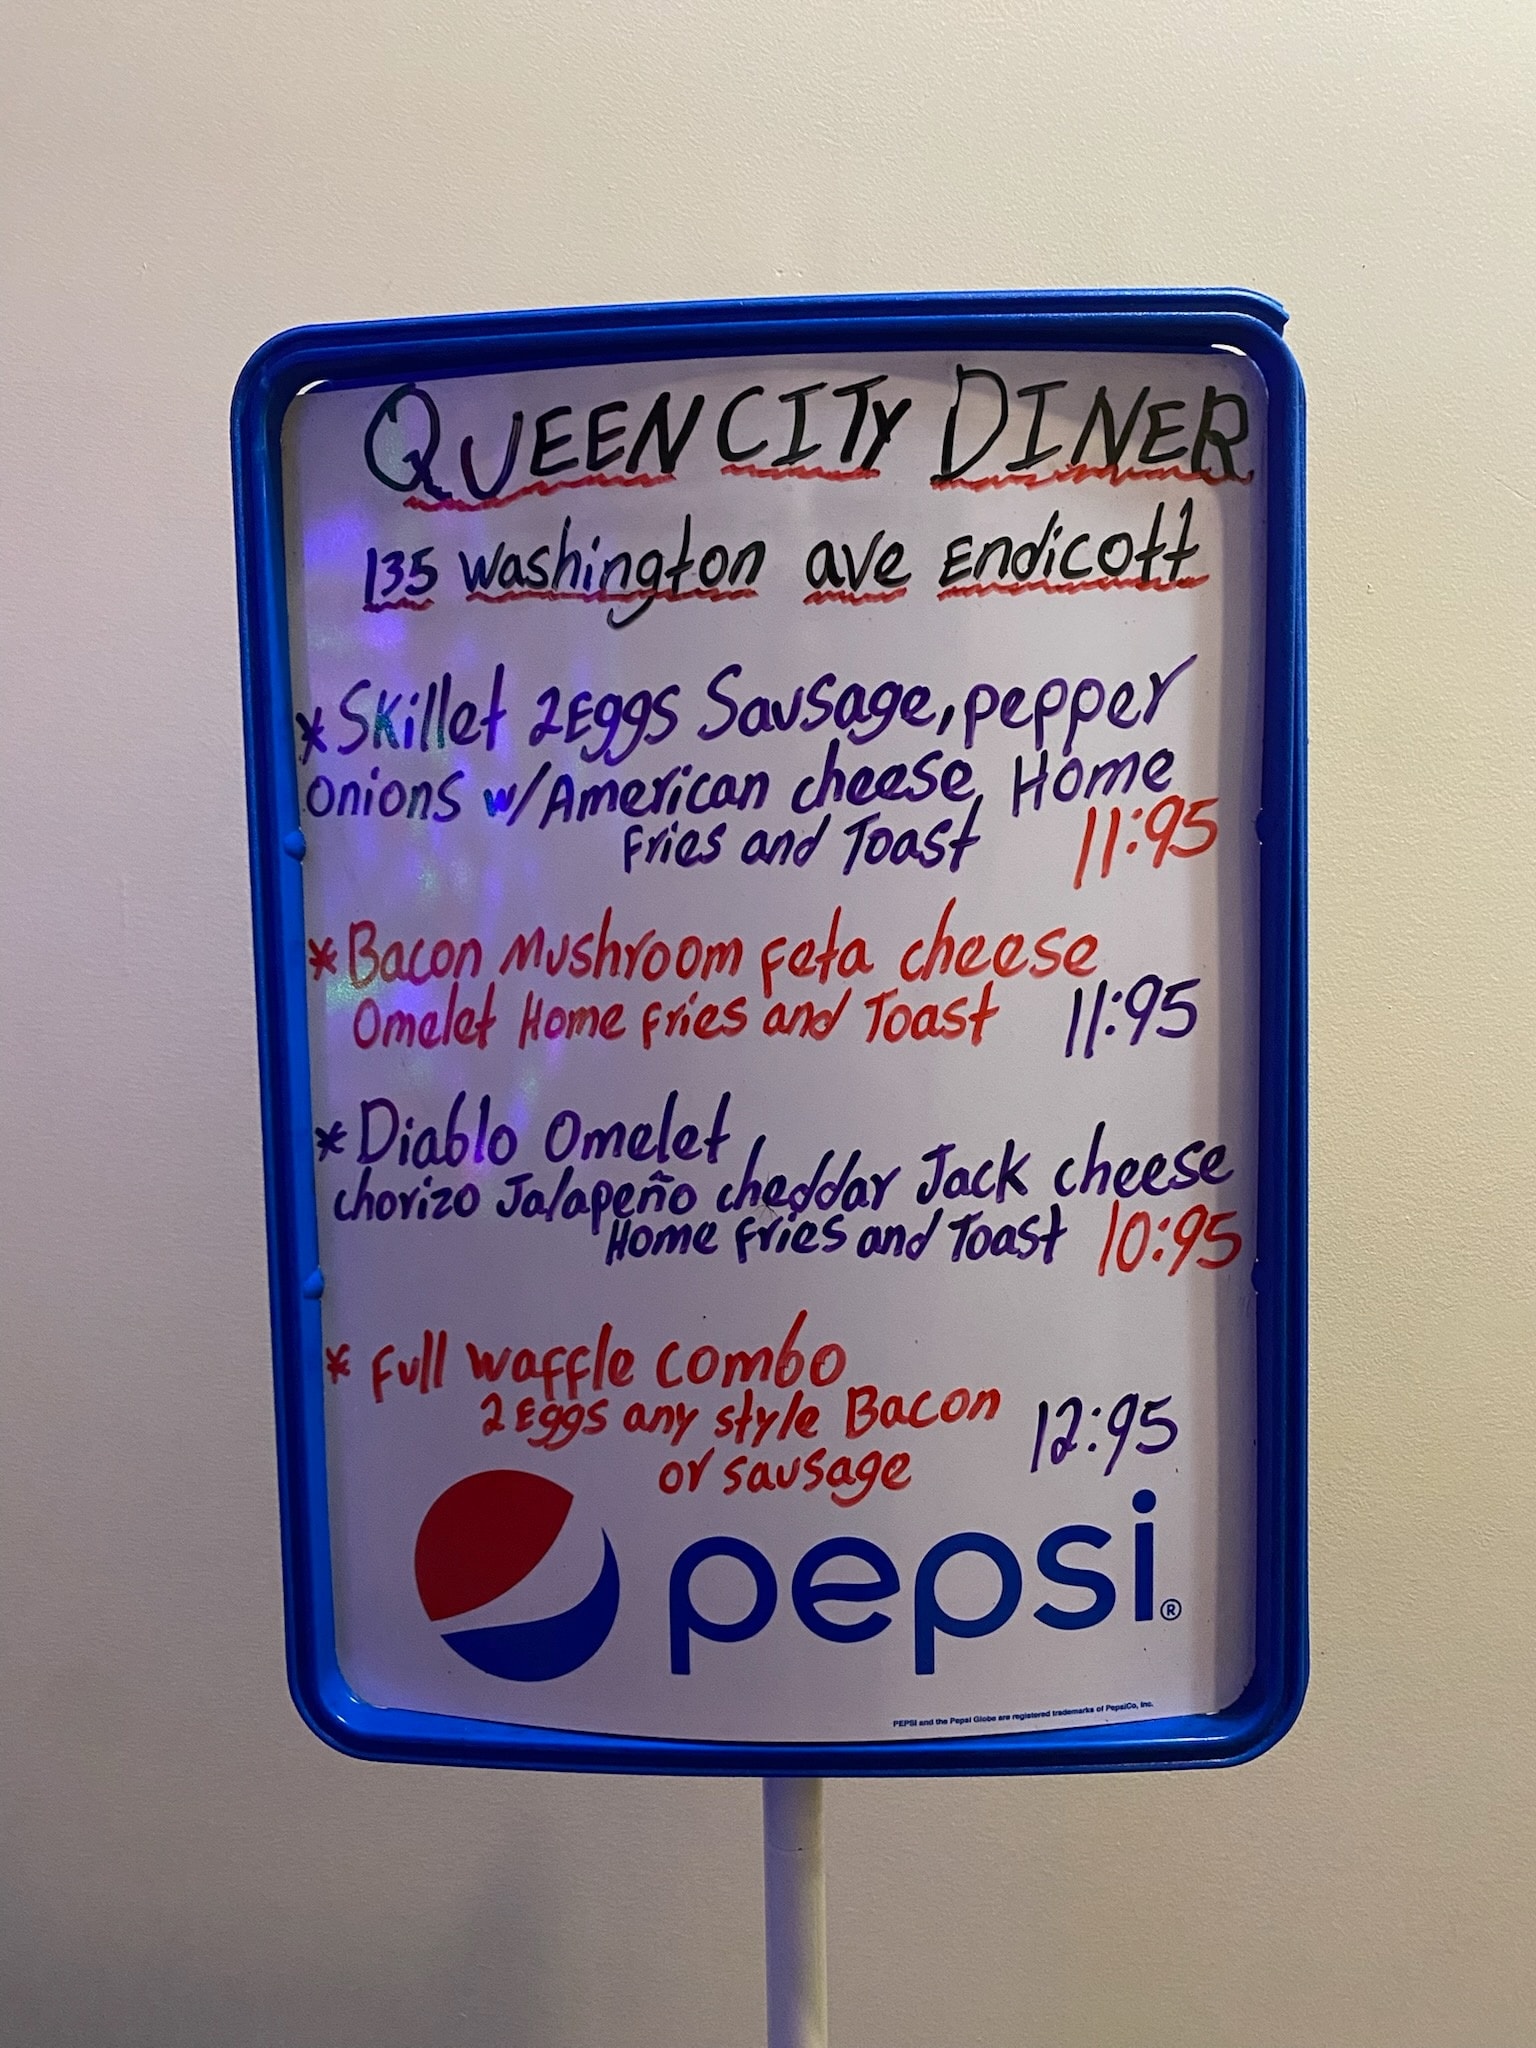 QUEEN CITY DINER
135 Washington ave Endicott
* Skillet 2Eggs Sausage, pepper
onions w/American cheese, Home
Fries and Toast 11:95
* Bacon Mushroom feta cheese
Omelet Home fries and Toast 11:95
* Diablo Omelet
chorizo Jalapeño cheddar Jack cheese
Home fries and Toast 10:95
* Full waffle combo
2 Eggs any style Bacon
or sausage 12:95
pepsi®
PEPSI and the Pepsi Globe are registered trademarks of PepsiCo, Inc.